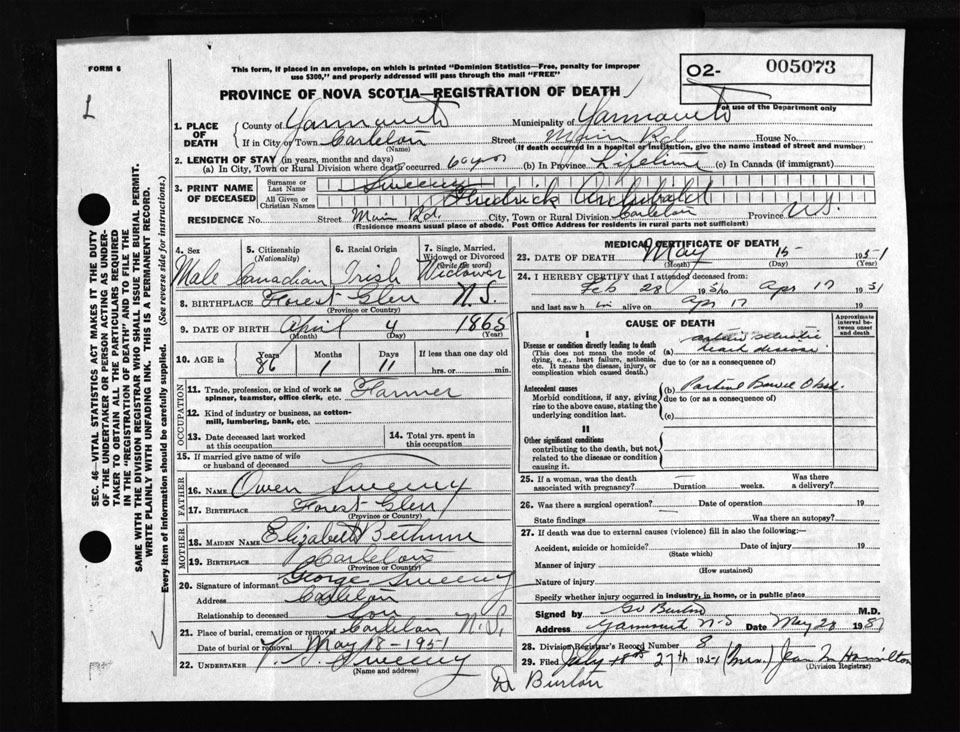 FORM 6
This form, if placed in an envelope, on which is printed "Dominion Statistics—Free, penalty for improper
use $300," and properly addressed will pass through the mail "FREE"
O2- 005073
For use of the Department only
PROVINCE OF NOVA SCOTIA—REGISTRATION OF DEATH
1. PLACE OF DEATH County of Yarmouth Municipality of Yarmouth
If in City or Town Carleton (Name) Street Main Rd House No.
(If death occurred in a hospital or institution, give the name instead of street and number)
2. LENGTH OF STAY (in years, months and days)
(a) In City, Town or Rural Division where death occurred (b) In Province Lifetime (c) In Canada (if immigrant)
3. PRINT NAME OF DECEASED Surname or Last Name Sweeny
All Given or Christian Names Fredrick Archibald
RESIDENCE No. Street Main Rd. City, Town or Rural Division Carleton Province N.S.
(Residence means usual place of abode. Post Office Address for residents in rural parts not sufficient)
4. Sex Male
5. Citizenship (Nationality) Canadian
6. Racial Origin Irish
7. Single, Married, Widowed or Divorced (Write the word) Widower
8. BIRTHPLACE Forest Glen N.S.
(Province or Country)
9. DATE OF BIRTH April (Month) 4 (Day) 1865 (Year)
10. AGE in Years 86 Months 1 Days 11 If less than one day old hrs. or min.
OCCUPATION
11. Trade, profession, or kind of work as
spinner, teamster, office clerk, etc. Farmer
12. Kind of industry or business, as cotton-
mill, lumbering, bank, etc.
13. Date deceased last worked
at this occupation
14. Total yrs. spent in
this occupation
15. If married give name of wife
or husband of deceased
FATHER
16. NAME Owen Sweeny
17. BIRTHPLACE Forest Glen
(Province or Country)
MOTHER
18. MAIDEN NAME Elizabeth Bethune
19. BIRTHPLACE Carleton
(Province or Country)
20. Signature of informant George Sweeny
Address Carleton
Relationship to deceased Son
21. Place of burial, cremation or removal Carleton N.S.
Date of burial or removal May 18-1951
22. UNDERTAKER Sweeny
(Name and address)
MEDICAL CERTIFICATE OF DEATH
23. DATE OF DEATH May (Month) 15 (Day) 1951 (Year)
24. I HEREBY CERTIFY that I attended deceased from:
Feb 28 1951 to Apr 17 1951
and last saw him alive on Apr 17 19
CAUSE OF DEATH
Approximate interval between onset and death
I
Disease or condition directly leading to death
(This does not mean the mode of
dying, e.g., heart failure, asthenia,
etc. It means the disease, injury, or
complication which caused death.)
(a) heart disease
due to (or as a consequence of)
Antecedent causes
Morbid conditions, if any, giving
rise to the above cause, stating the
underlying condition last.
(b) Partial Bowel Obst.
due to (or as a consequence of)
(c)
II
Other significant conditions
contributing to the death, but not
related to the disease or condition
causing it.
25. If a woman, was the death
associated with pregnancy? Duration weeks. Was there
a delivery?
26. Was there a surgical operation? Date of operation 19
State findings Was there an autopsy?
27. If death was due to external causes (violence) fill in also the following:—
Accident, suicide or homicide? (State which) Date of injury 19
Manner of injury (How sustained)
Nature of injury
Specify whether injury occurred in industry, in home, or in public place
Signed by Burton M.D.
Address Yarmouth N-S Date May 28 19
28. Division Registrar's Record Number 8
29. Filed July 27th 1951 (Mrs.) Jean M Hamilton
(Division Registrar)
Dr Burton
SEC. 46—VITAL STATISTICS ACT MAKES IT THE DUTY
OF THE UNDERTAKER OR PERSON ACTING AS UNDER-
TAKER TO OBTAIN ALL THE PARTICULARS REQUIRED
IN THE "REGISTRATION OF DEATH" AND TO FILE THE
SAME WITH THE DIVISION REGISTRAR WHO SHALL ISSUE THE BURIAL PERMIT.
WRITE PLAINLY WITH UNFADING INK. THIS IS A PERMANENT RECORD.
Every item of information should be carefully supplied. (See reverse side for instructions.)